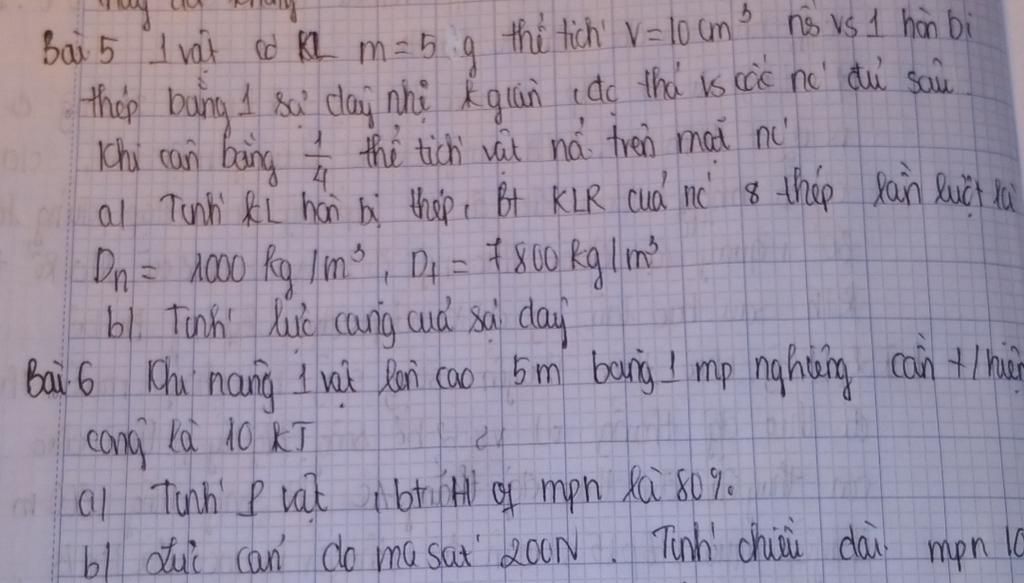 Bài 5 1 vật có KL m = 5 g thể tích V = 10 cm³ nối vs 1 hòn bi
thép bằng 1 sợi dây nhẹ k giãn, đc thả vs cốc nc' đủ sâu
Khi cân bằng 1/4 thể tích vật nổi trên mặt nc'
a) Tính KL hòn bi thép, Bt KLR của nc' & thép lần lượt là
Dn = 1000 kg/m³, Dt = 7800 kg/m³
b). Tính lực căng của sợi dây
Bài 6 Khi nâng 1 vật lên cao 5m bằng 1 mp nghiêng cần t/hiện
công là 10 kJ
a) Tính P vật, bt H of mpn là 80%.
b) Lực cản do ma sát 200N. Tính chiều dài mpn